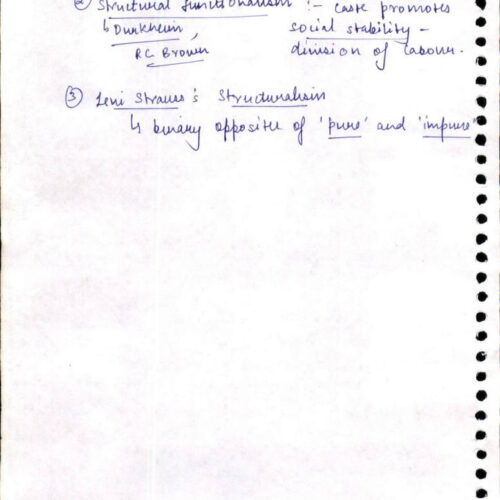 ② Structural functionalism :- caste promotes
↳ Durkheim, social stability -
RC Brown division of labour.
③ Levi Strauss's Structuralism
↳ binary opposites of 'pure' and 'impure'